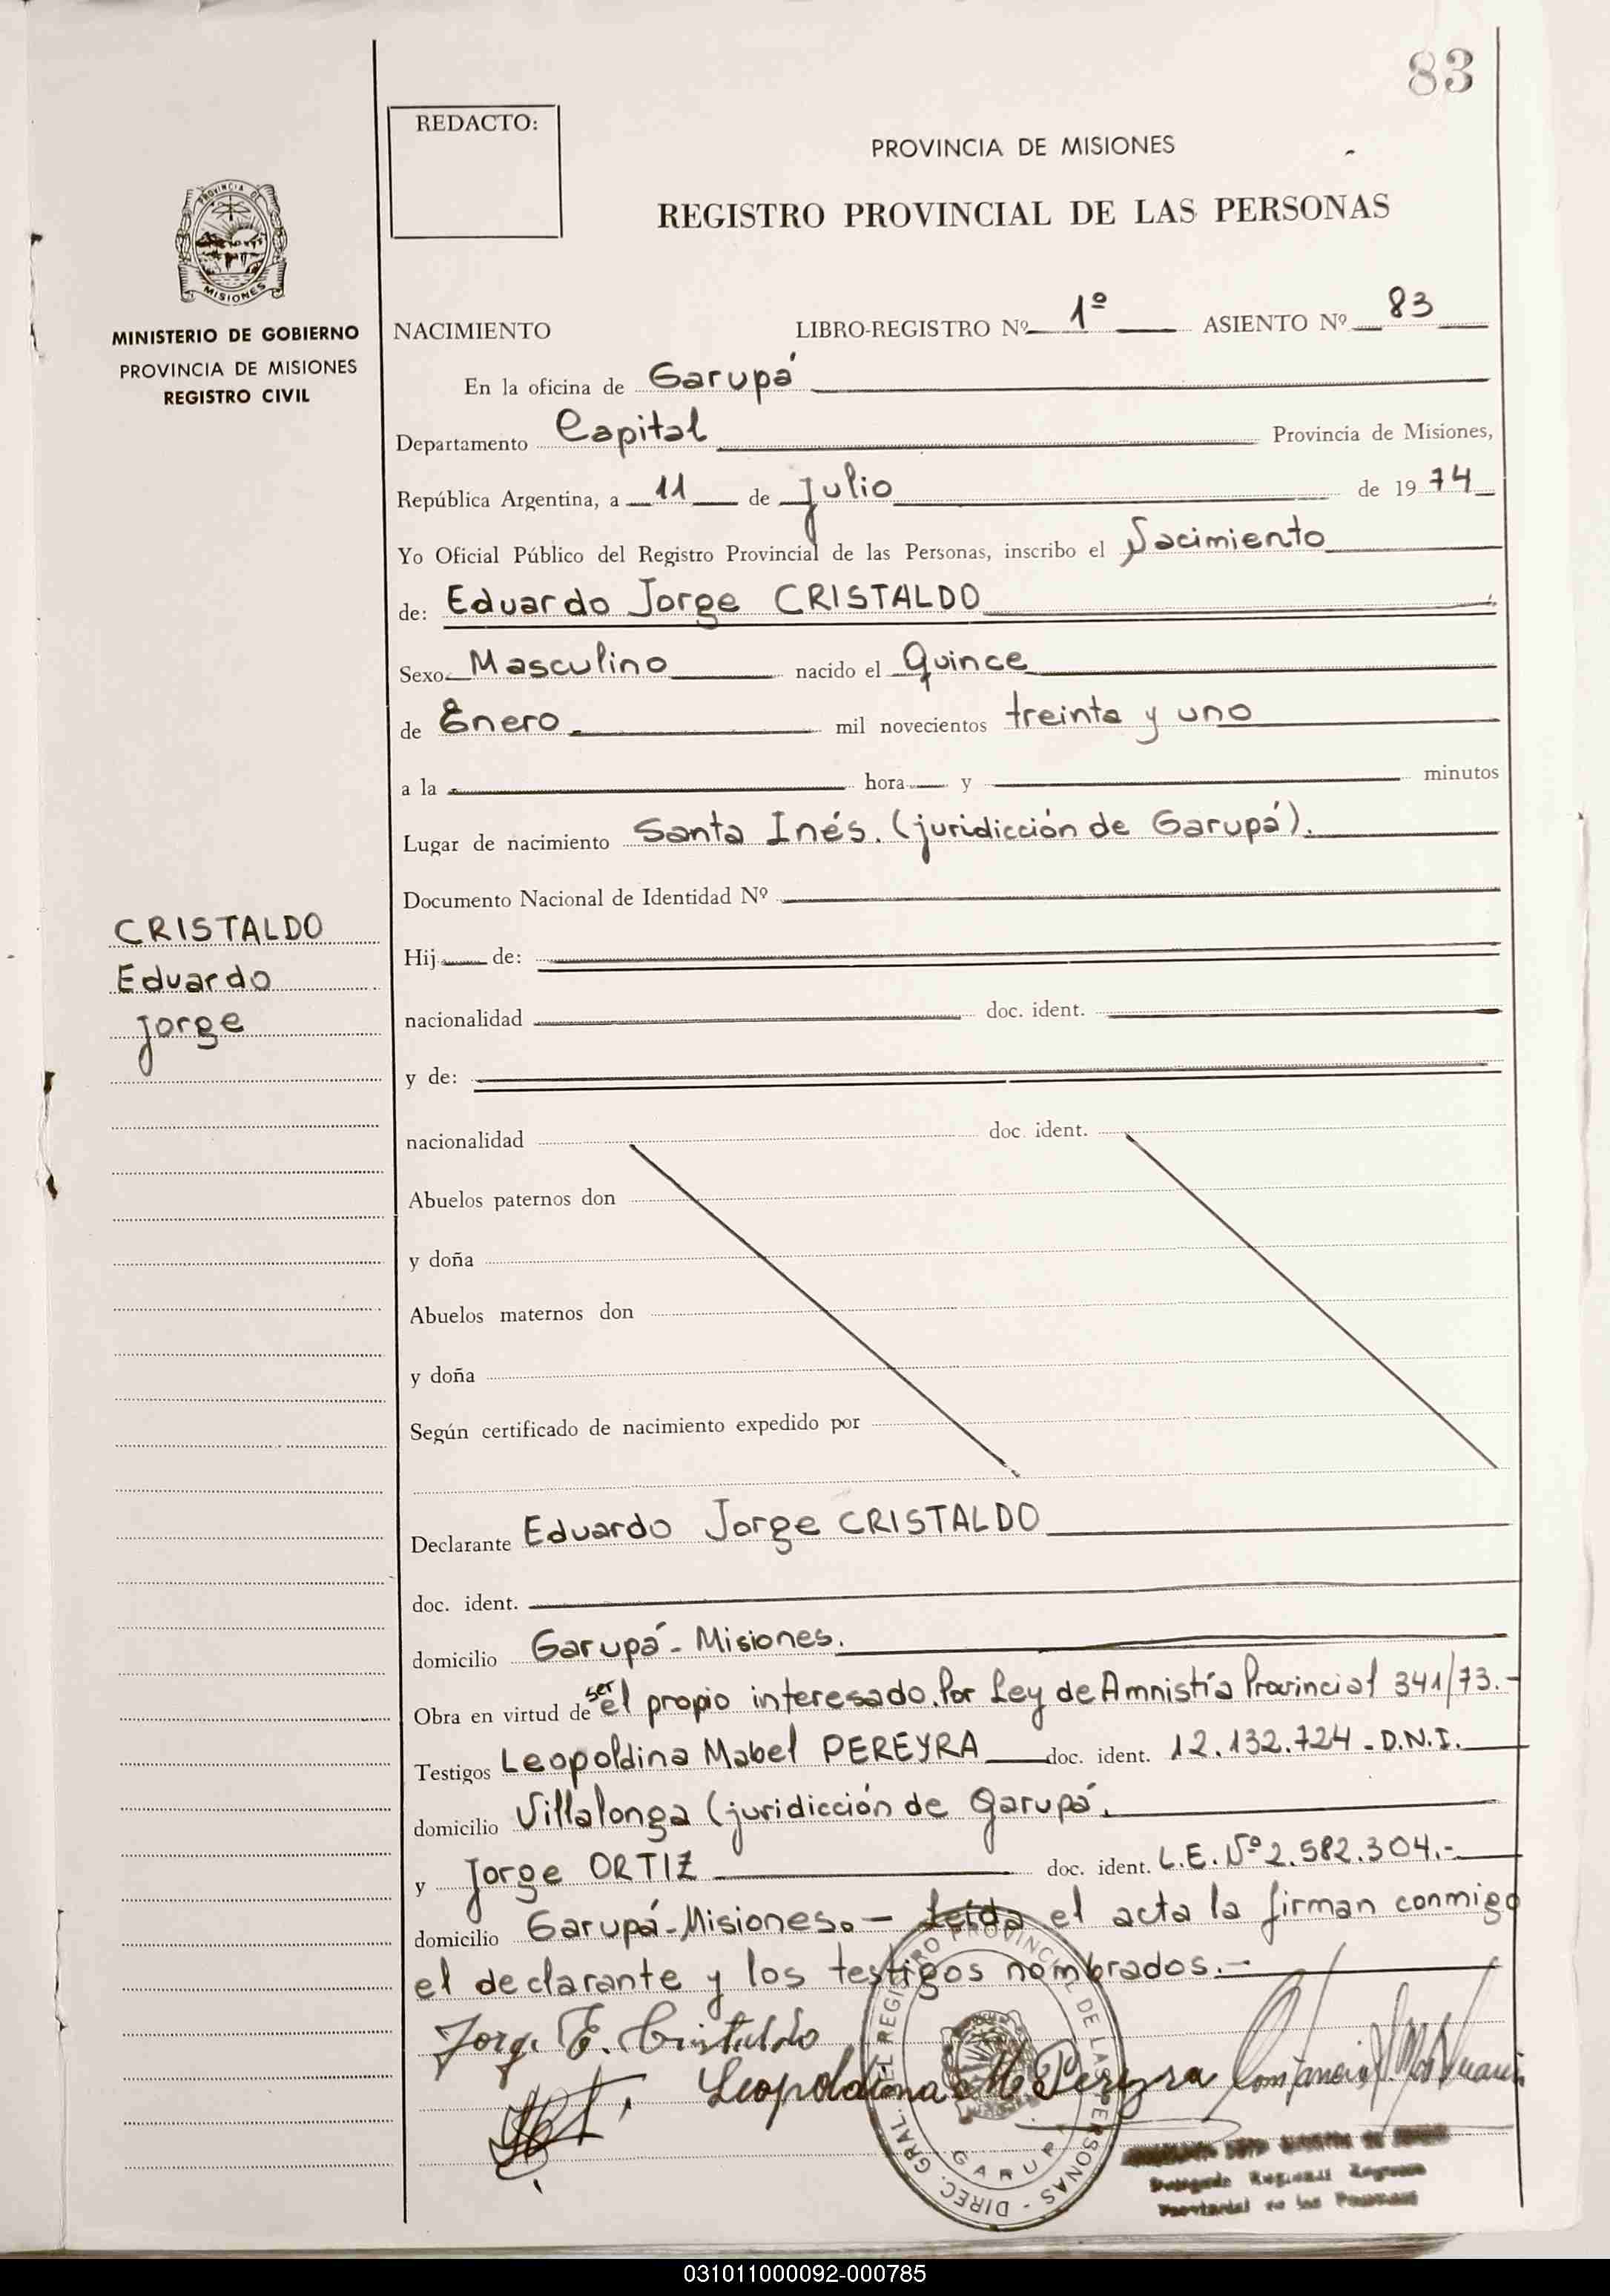 83
REDACTO:
PROVINCIA DE MISIONES
REGISTRO PROVINCIAL DE LAS PERSONAS
PROVINCIA DE
MISIONES
MINISTERIO DE GOBIERNO
PROVINCIA DE MISIONES
REGISTRO CIVIL
NACIMIENTO LIBRO-REGISTRO Nº 1º ASIENTO Nº 83
En la oficina de Garupá
Departamento Capital Provincia de Misiones,
República Argentina, a 11 de Julio de 1974
Yo Oficial Público del Registro Provincial de las Personas, inscribo el Nacimiento
de: Eduardo Jorge CRISTALDO
Sexo Masculino nacido el Quince
de Enero mil novecientos treinta y uno
a la hora y minutos
Lugar de nacimiento Santa Inés. (juridicción de Garupá).
Documento Nacional de Identidad Nº
CRISTALDO
Eduardo
Jorge
Hij de:
nacionalidad doc. ident.
y de:
nacionalidad doc. ident.
Abuelos paternos don
y doña
Abuelos maternos don
y doña
Según certificado de nacimiento expedido por
Declarante Eduardo Jorge CRISTALDO
doc. ident.
domicilio Garupá - Misiones.
Obra en virtud de ser el propio interesado. Por Ley de Amnistía Provincial 341/73.-
Testigos Leopoldina Mabel PEREYRA doc. ident. 12.132.724 - D.N.I.
domicilio Villalonga (juridicción de Garupá.
y Jorge ORTIZ doc. ident. L.E. Nº 2.582.304.-
domicilio Garupá-Misiones.- Leída el acta la firman conmigo
el declarante y los testigos nombrados.-
Jorg. E. Cristaldo
Leopoldina M Pereyra
DIREC. GRAL. DEL REGISTRO PROVINCIAL DE LAS PERSONAS -
GARUPA
Delegado Regional Registro
Provincial de las Personas
031011000092-000785